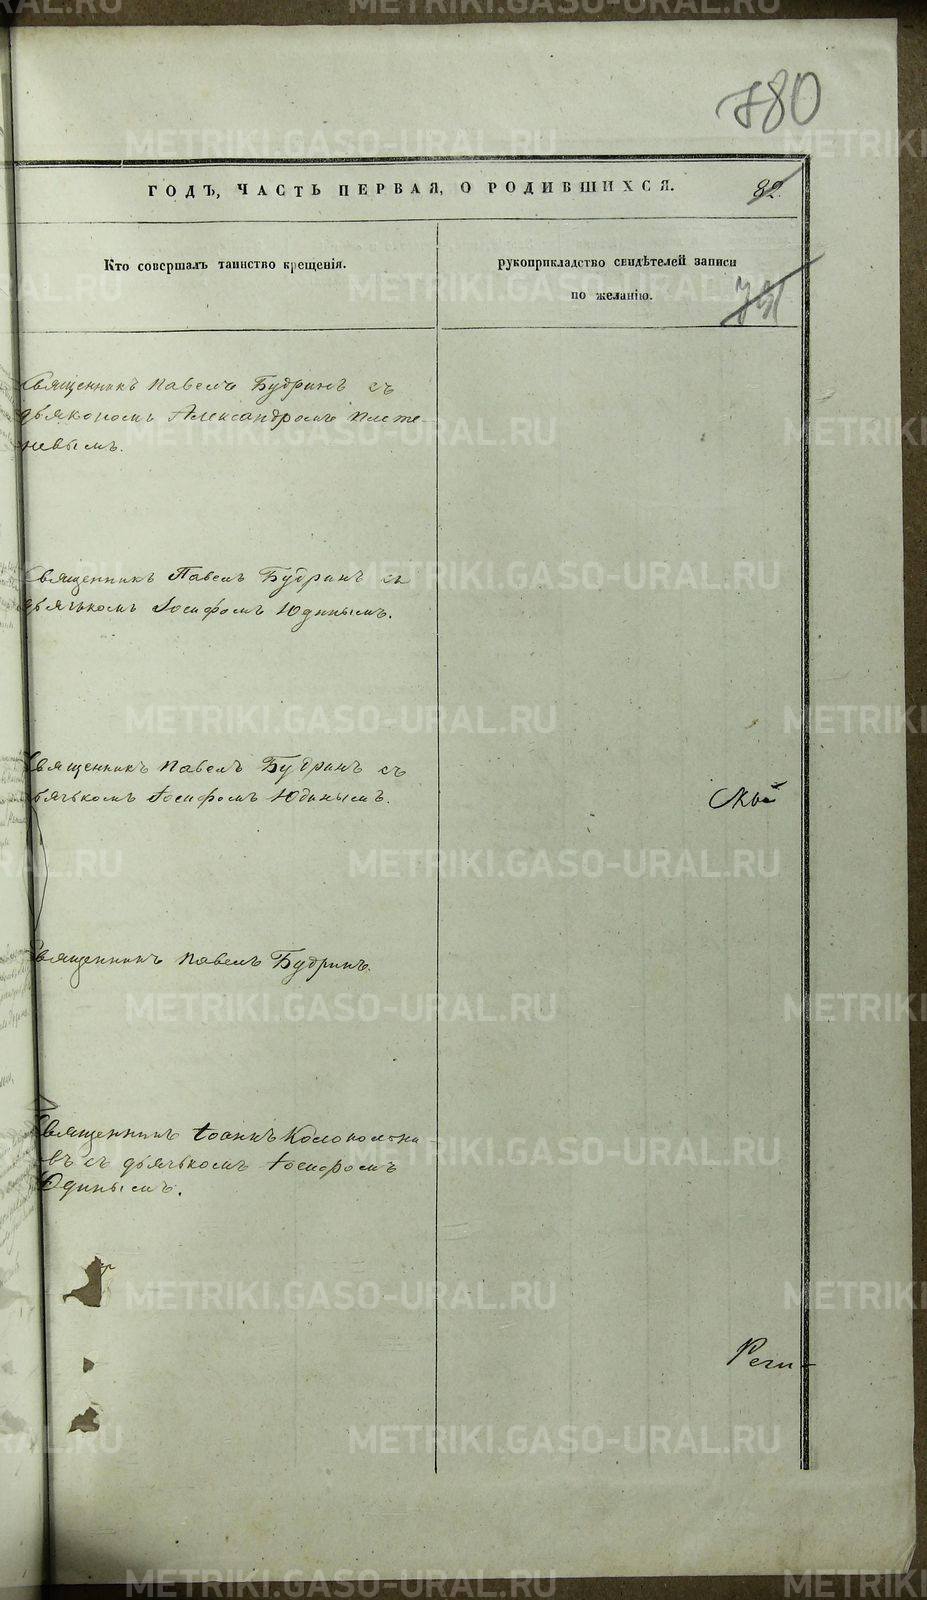 780
ГОДЪ, ЧАСТЬ ПЕРВАЯ, О РОДИВШИХСЯ.
82.
Кто совершалъ таинство крещенія.
рукоприкладство свидѣтелей записи
по желанію.
Священникъ Павелъ Будринъ съ
дьякономъ Александромъ
Священникъ Павелъ Будринъ съ
дьячькомъ Іосифомъ Юдинымъ.
Священникъ Павелъ Будринъ съ
дьячькомъ Іосифомъ Юдинымъ.
Священникъ Павелъ Будринъ.
Священникъ Іоаннъ
въ съ дьячькомъ Іосифомъ
Юдинымъ.
METRIKI.GASO-URAL.RU